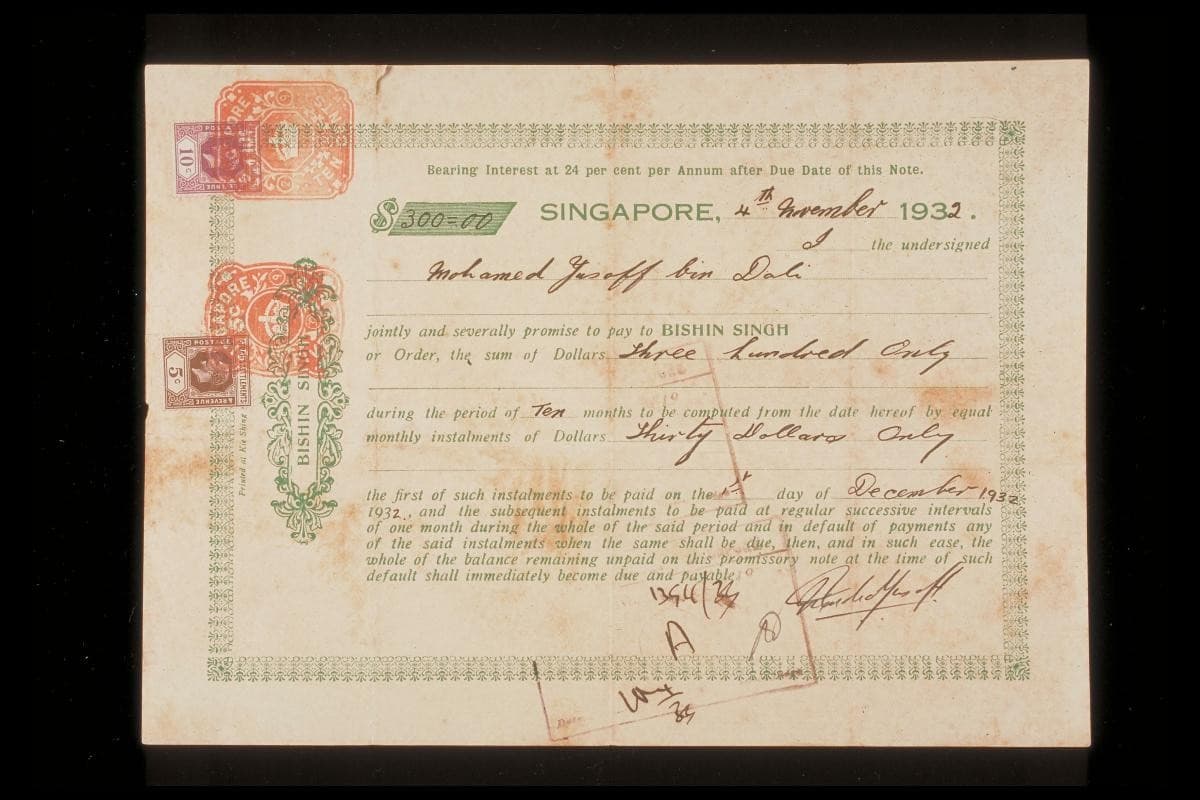 Bearing Interest at 24 per cent per Annum after Due Date of this Note.
$ 300=00 SINGAPORE, 4th November 1932.
I the undersigned
Mohamed Yusoff bin Dali
jointly and severally promise to pay to BISHIN SINGH
or Order, the sum of Dollars Three hundred Only
during the period of Ten months to be computed from the date hereof by equal
monthly instalments of Dollars Thirty Dollars Only
the first of such instalments to be paid on the 1st day of December 1932
1932, and the subsequent instalments to be paid at regular successive intervals
of one month during the whole of the said period and in default of payments any
of the said instalments when the same shall be due, then, and in such ease, the
whole of the balance remaining unpaid on this promissory note at the time of such
default shall immediately become due and payable.
BISHIN SINGH
Printed at Kie Shing
POSTAGE
10 c
REVENUE
POSTAGE
5 c
& REVENUE
Date